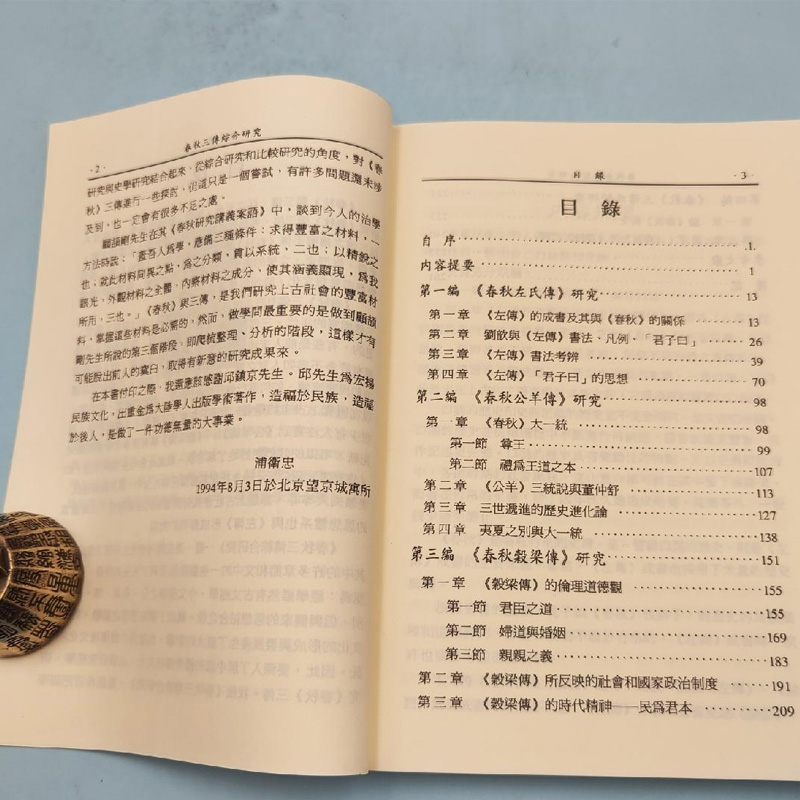 ·2·
春秋三傳綜合研究
研究與史學研究結合起來，從綜合研究和比較研究的角度，對《春
秋》三傳進行一些探討，但這只是一個嘗試，有許多問題還未涉
及到，也一定會有很多不足之處。
顧頡剛先生在其《春秋研究講義案語》中，談到今人的治學
方法時說：「蓋吾人為學，應備三種條件：求得豐富之材料，一
也；就此材料同異之點，為之分類，貫以系統，二也；以精銳之
眼光，外觀材料之全體，內察材料之成分，使其涵義顯現，為我
所用，三也。」《春秋》與三傳，是我們研究上古社會的豐富材
料。掌握這些材料是必需的，然而，做學問最重要的是做到顧頡
剛先生所說的第三個階段，即爬梳整理、分析的階段，這樣才有
可能說出前人的窠臼，取得有新意的研究成果來。
在本書付印之際，我還應該感謝邱鎮京先生。邱先生為宏揚
民族文化，出重金為大陸學人出版學術著作，造福於民族，造福
於後人，是做了一件功德無量的大事業。
浦衛忠
1994年8月3日於北京望京城寓所
目錄
·3·
目錄
自序 .1.
內容提要 1
第一編 《春秋左氏傳》研究 13
第一章 《左傳》的成書及其與《春秋》的關係 13
第二章 劉歆與《左傳》書法、凡例、「君子曰」 26
第三章 《左傳》書法考辨 39
第四章 《左傳》「君子曰」的思想 70
第二編 《春秋公羊傳》研究 98
第一章 《春秋》大一統 98
第一節 尊王 99
第二節 禮為王道之本 107
第二章 《公羊》三統說與董仲舒 113
第三章 三世遞進的歷史進化論 127
第四章 夷夏之別與大一統 138
第三編 《春秋穀梁傳》研究 151
第一章 《穀梁傳》的倫理道德觀 155
第一節 君臣之道 155
第二節 婦道與婚姻 169
第三節 親親之義 183
第二章 《穀梁傳》所反映的社會和國家政治制度 191
第三章 《穀梁傳》的時代精神——民為君本 209